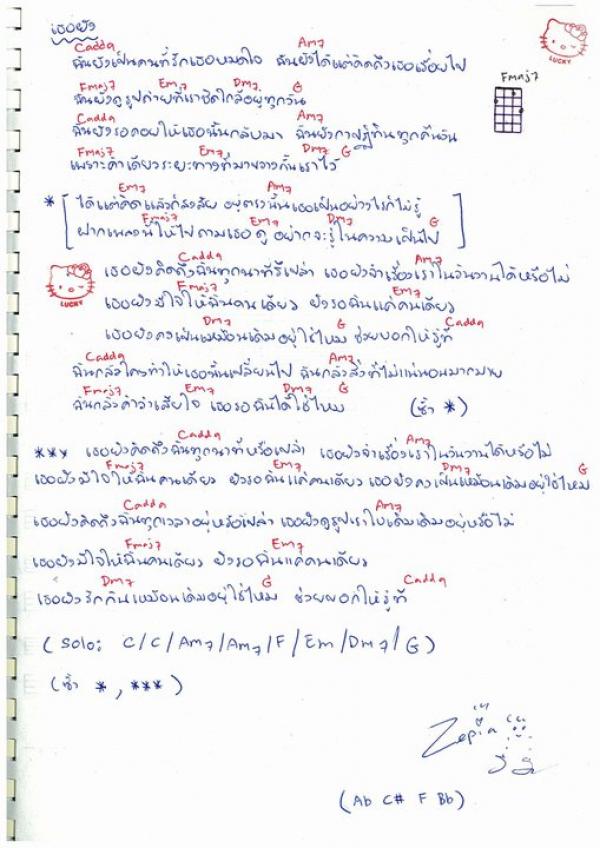 เธอยัง
Cadd9 Am7
ฉันยังเป็นคนที่รักเธอหมดใจ ฉันยังได้แต่คิดถึงเธอเรื่อยไป
Fmaj7 Em7 Dm7 G
ฉันยังดูรูปถ่ายที่เราชิดใกล้อยู่ทุกวัน
Cadd9 Am7
ฉันยังรอคอยให้เธอนั้นกลับมา ฉันยังกาปฏิทินทุกคืนวัน
Fmaj7 Em7 Dm7 G
เพราะคำเดียวระยะทางที่มาขวางกั้นเราไว้
Fmaj7
LUCKY
Em7 Am7
* [ได้แต่คิดแล้วก็สงสัย อยู่ตรงนั้นเธอเป็นอย่างไรก็ไม่รู้
Fmaj7 Em7 Dm7 G
ฝากเพลงนี้ให้ไปถามเธอดู อยากจะรู้ในความเป็นไป]
Cadd9 Am7
เธอยังคิดถึงฉันทุกนาทีรึเปล่า เธอยังจำเรื่องเราในวันวานได้หรือไม่
LUCKY
Fmaj7 Em7
เธอยังมีใจให้ฉันคนเดียว ยังรอฉันแค่คนเดียว
Dm7 G Cadd9
เธอยังคงเป็นเหมือนเดิมอยู่ใช่ไหม ช่วยบอกให้รู้ที
Cadd9 Am7
ฉันกลัวใครทำให้เธอนั้นเปลี่ยนไป ฉันกลัวสิ่งที่ไม่แน่นอนมากมาย
Fmaj7 Em7 Dm7 G
ฉันกลัวคำว่าเสียใจ เธอรอฉันได้ใช่ไหม (ซ้ำ *)
Cadd9 Am7
*** เธอยังคิดถึงฉันทุกนาทีหรือเปล่า เธอยังจำเรื่องเราในวันวานได้หรือไม่
Fmaj7 Em7 Dm7 G
เธอยังมีใจให้ฉันคนเดียว ยังรอฉันแค่คนเดียว เธอยังคงเป็นเหมือนเดิมอยู่ใช่ไหม
Cadd9 Am7
เธอยังคิดถึงฉันทุกเวลาอยู่หรือเปล่า เธอยังดูรูปเราใบเดิมเดิมอยู่หรือไม่
Fmaj7 Em7
เธอยังมีใจให้ฉันคนเดียว ยังรอฉันแค่คนเดียว
Dm7 G Cadd9
เธอยังรักกันเหมือนเดิมอยู่ใช่ไหม ช่วยบอกให้รู้ที
(Solo: C/C/Am7/Am7/F/Em/Dm7/G)
(ซ้ำ *, ***)
Zepia
(Ab C# F Bb)